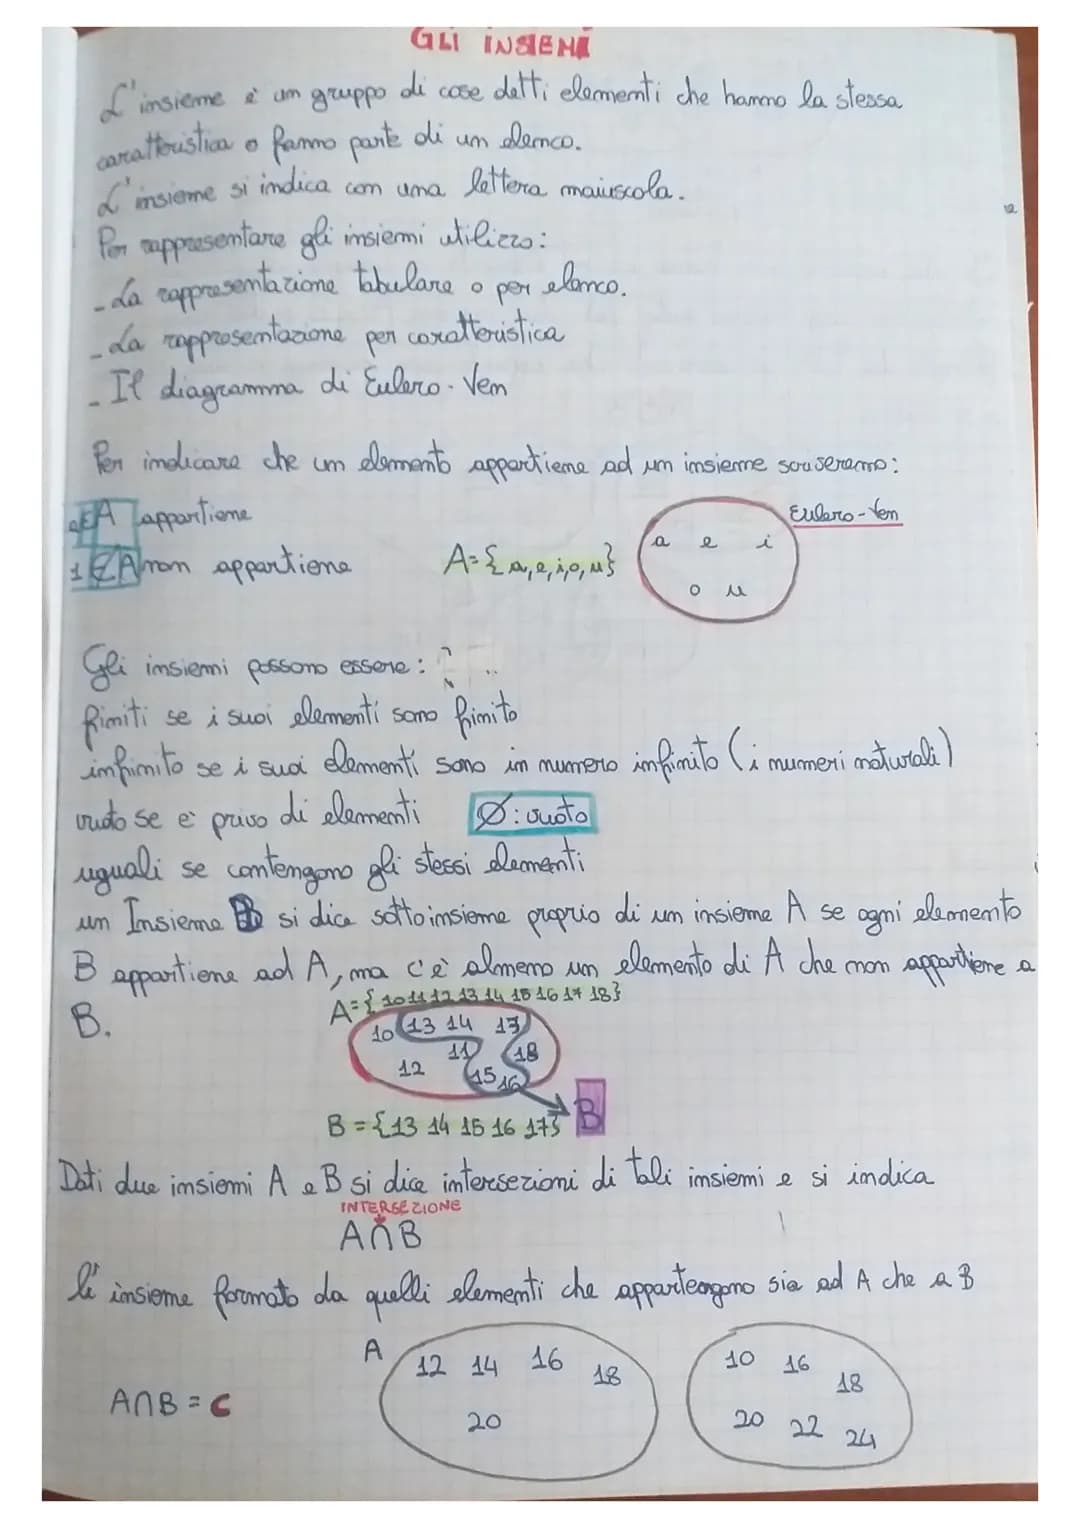 GLI INSIEMI
L'insieme è un gruppo di cose detti elementi che hanno la stessa
caratteristica o fanno parte di un elenco.
L'insieme si indica con una lettera maiuscola.
Per rappresentare gli insiemi utilizzo:
- La rappresentazione tabulare o per elenco.
- La rappresentazione per caratteristica
- Il diagramma di Eulero-Ven
Per indicare che un elemento appartiene ad un insieme scriveremo:
a∈A appartiene
1∉A non appartiene
A={a,e,i,o,u}
Eulero-Ven
a e i
o u
Gli insiemi possono essere:
finiti se i suoi elementi sono finito
infinito se i suoi elementi sono in numero infinito (i numeri naturali)
vuoto se è privo di elementi
Ø: vuoto
uguali se contengono gli stessi elementi
un Insieme B si dice sottoinsieme proprio di un insieme A se ogni elemento
B appartiene ad A, ma c'è almeno un elemento di A che non appartiene a
B.
A={10 11 12 13 14 15 16 17 18}
10 13 14 17
11 18
12 15 16
B
B={13 14 15 16 17}
Dati due insiemi A e B si dice intersezioni di tali insiemi e si indica
INTERSEZIONE
A∩B
l'insieme formato da quelli elementi che appartengono sia ad A che a B
A
12 14 16
18
20
10 16
18
20 22 24
A∩B = C